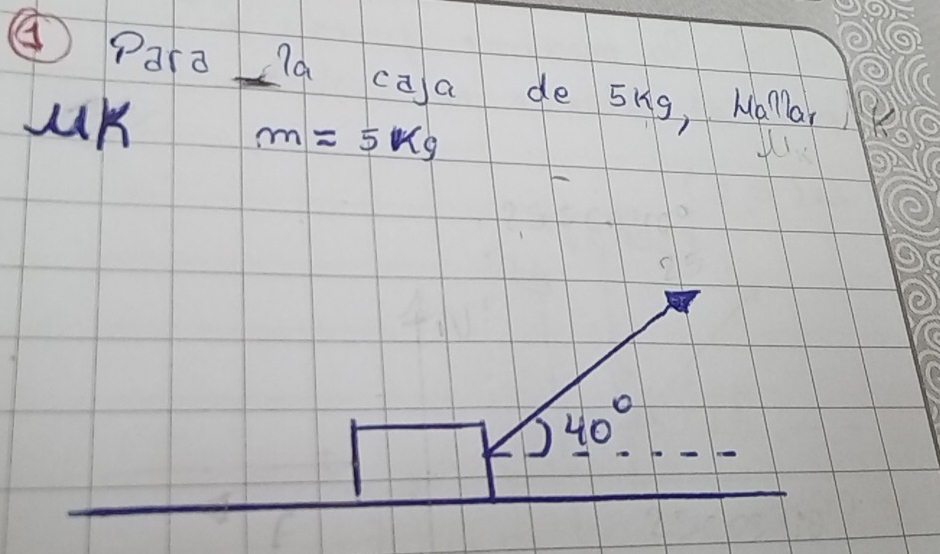 ① Para la caja de 5Kg, Hallar K
μK m = 5 Kg
40°